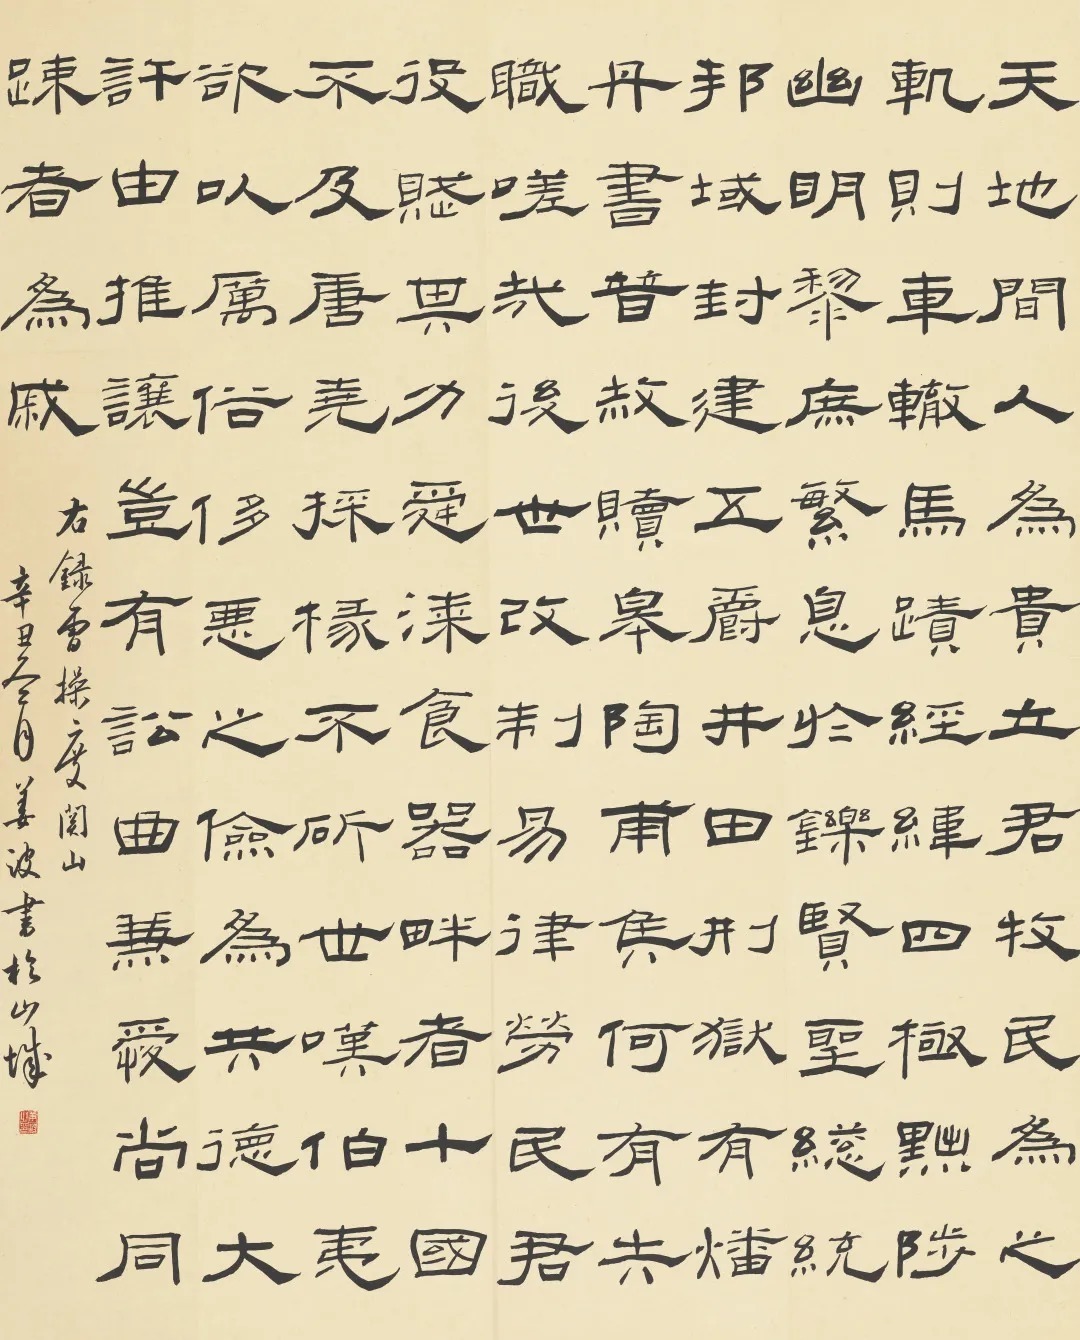 天地間人為貴立君牧民為之
軌則車轍馬蹟經緯四極黜陟
幽明黎庶繁息於鑠賢聖總統
邦域封建五爵井田刑獄有燔
丹書普赦贖皋陶甫侯何有失
職嗟哉後世改制易律勞民為君
役賦其力舜漆食器畔者十國
不及唐堯採椽不斫世嘆伯夷
欲以厲俗侈惡之儉為共德大
許由推讓豈有訟曲兼愛尚同
疎者為戚
右錄曹操度關山
辛丑 月姜波書於山城